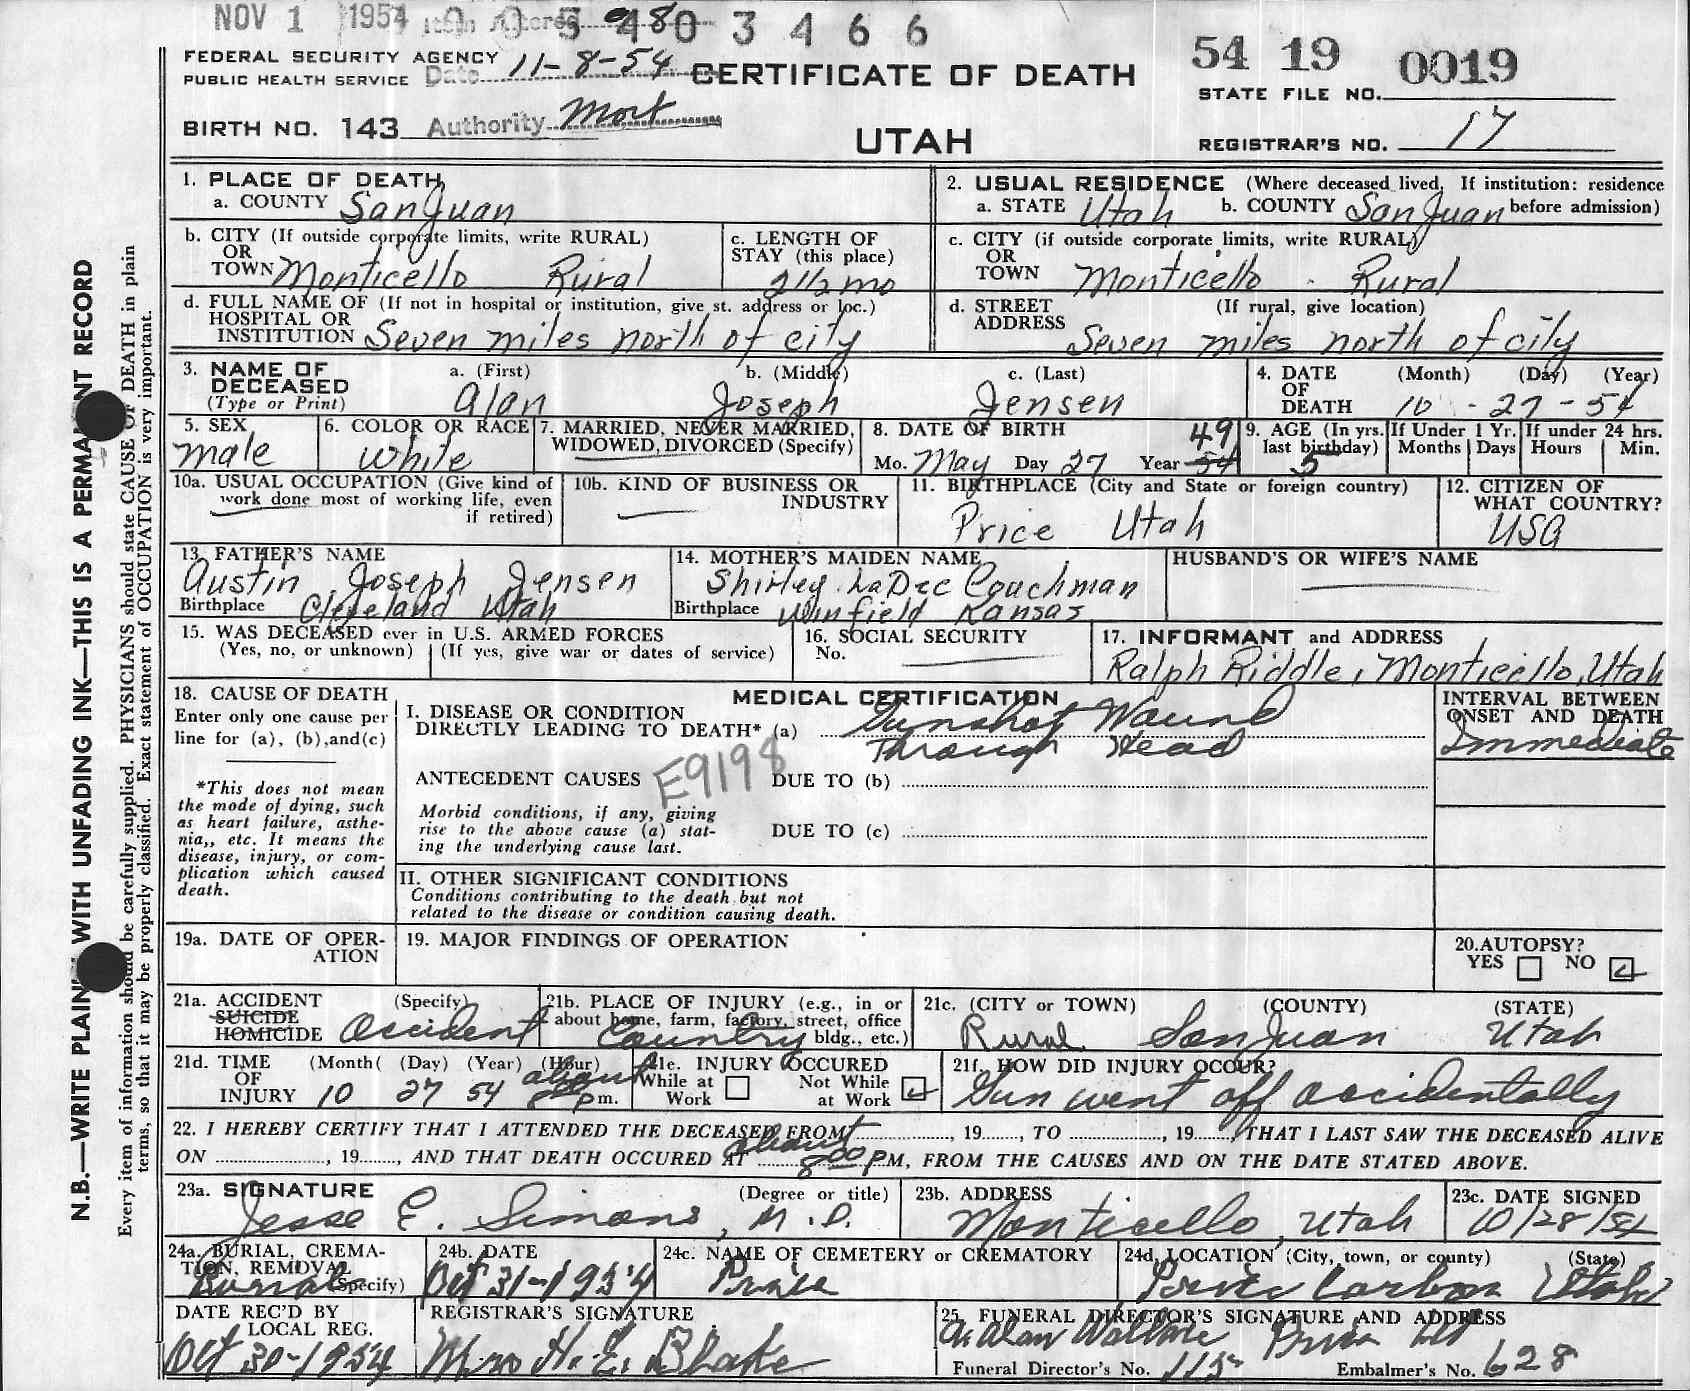 NOV 1 1954 Item Altered 9 & 8
0 0 5 4 8 0 3 4 6 6
54 19 0019
FEDERAL SECURITY AGENCY
PUBLIC HEALTH SERVICE
Date 11-8-54
CERTIFICATE OF DEATH
STATE FILE NO.
BIRTH NO. 143 Authority Mort
UTAH
REGISTRAR'S NO. 17
1. PLACE OF DEATH
a. COUNTY San Juan
2. USUAL RESIDENCE (Where deceased lived. If institution: residence
a. STATE Utah b. COUNTY San Juan before admission)
b. CITY (If outside corporate limits, write RURAL)
OR
TOWN Monticello Rural
c. LENGTH OF
STAY (this place)
2 1/2 mo
c. CITY (if outside corporate limits, write RURAL)
OR
TOWN Monticello Rural
d. FULL NAME OF (If not in hospital or institution, give st. address or loc.)
HOSPITAL OR
INSTITUTION Seven miles north of city
d. STREET (If rural, give location)
ADDRESS Seven miles north of city
3. NAME OF
DECEASED
(Type or Print)
a. (First) b. (Middle) c. (Last)
Alan Joseph Jensen
4. DATE (Month) (Day) (Year)
OF
DEATH 10 - 27 - 54
5. SEX
male
6. COLOR OR RACE
White
7. MARRIED, NEVER MARRIED,
WIDOWED, DIVORCED (Specify)
8. DATE OF BIRTH 49
Mo. May Day 27 Year 54
9. AGE (In yrs.
last birthday)
5
If Under 1 Yr.
Months Days
If under 24 hrs.
Hours Min.
10a. USUAL OCCUPATION (Give kind of
work done most of working life, even
if retired)
10b. KIND OF BUSINESS OR
INDUSTRY
11. BIRTHPLACE (City and State or foreign country)
Price Utah
12. CITIZEN OF
WHAT COUNTRY?
USA
13. FATHER'S NAME
Austin Joseph Jensen
Birthplace Cleveland Utah
14. MOTHER'S MAIDEN NAME
Shirley LaDee Couchman
Birthplace Winfield Kansas
HUSBAND'S OR WIFE'S NAME
15. WAS DECEASED ever in U.S. ARMED FORCES
(Yes, no, or unknown) (If yes, give war or dates of service)
16. SOCIAL SECURITY
No.
17. INFORMANT and ADDRESS
Ralph Riddle, Monticello, Utah
18. CAUSE OF DEATH
Enter only one cause per
line for (a), (b), and (c)
*This does not mean
the mode of dying, such
as heart failure, asthe-
nia,, etc. It means the
disease, injury, or com-
plication which caused
death.
MEDICAL CERTIFICATION
I. DISEASE OR CONDITION
DIRECTLY LEADING TO DEATH* (a) Gunshot Wound
Through Head
ANTECEDENT CAUSES E9198 DUE TO (b)
Morbid conditions, if any, giving
rise to the above cause (a) stat-
ing the underlying cause last.
DUE TO (c)
II. OTHER SIGNIFICANT CONDITIONS
Conditions contributing to the death but not
related to the disease or condition causing death.
INTERVAL BETWEEN
ONSET AND DEATH
Immediate
19a. DATE OF OPER-
ATION
19. MAJOR FINDINGS OF OPERATION
20. AUTOPSY?
YES NO
21a. ACCIDENT (Specify)
SUICIDE
HOMICIDE Accident
21b. PLACE OF INJURY (e.g., in or
about home, farm, factory, street, office
bldg., etc.)
Country
21c. (CITY or TOWN) (COUNTY) (STATE)
Rural San Juan Utah
21d. TIME (Month( (Day) (Year) (Hour)
OF
INJURY 10 27 54 about 8:00 pm.
21e. INJURY OCCURED
While at
Work
Not While
at Work
21f. HOW DID INJURY OCCUR?
Gun went off accidentally
22. I HEREBY CERTIFY THAT I ATTENDED THE DECEASED FROM , 19 , TO , 19 , THAT I LAST SAW THE DECEASED ALIVE
ON , 19 , AND THAT DEATH OCCURED AT about 8:00 PM, FROM THE CAUSES AND ON THE DATE STATED ABOVE.
23a. SIGNATURE (Degree or title)
Jesse E. Simons, M.D.
23b. ADDRESS
Monticello, Utah
23c. DATE SIGNED
10/28/54
24a. BURIAL, CREMA-
TION, REMOVAL
(Specify)
Burial
24b. DATE
Oct 31-1954
24c. NAME OF CEMETERY or CREMATORY
Price
24d. LOCATION (City, town, or county) (State)
Price Carbon Utah
DATE REC'D BY
LOCAL REG.
Oct 30-1954
REGISTRAR'S SIGNATURE
Mrs H. E. Blake
25. FUNERAL DIRECTOR'S SIGNATURE AND ADDRESS
A. Alan Wallace Price Ut
Funeral Director's No. 115 Embalmer's No. 628
N.B.—WRITE PLAIN WITH UNFADING INK—THIS IS A PERMA NT RECORD
Every item of information should be carefully supplied. PHYSICIANS should state CAUSE OF DEATH in plain
terms, so that it may be properly classified. Exact statement of OCCUPATION is very important.